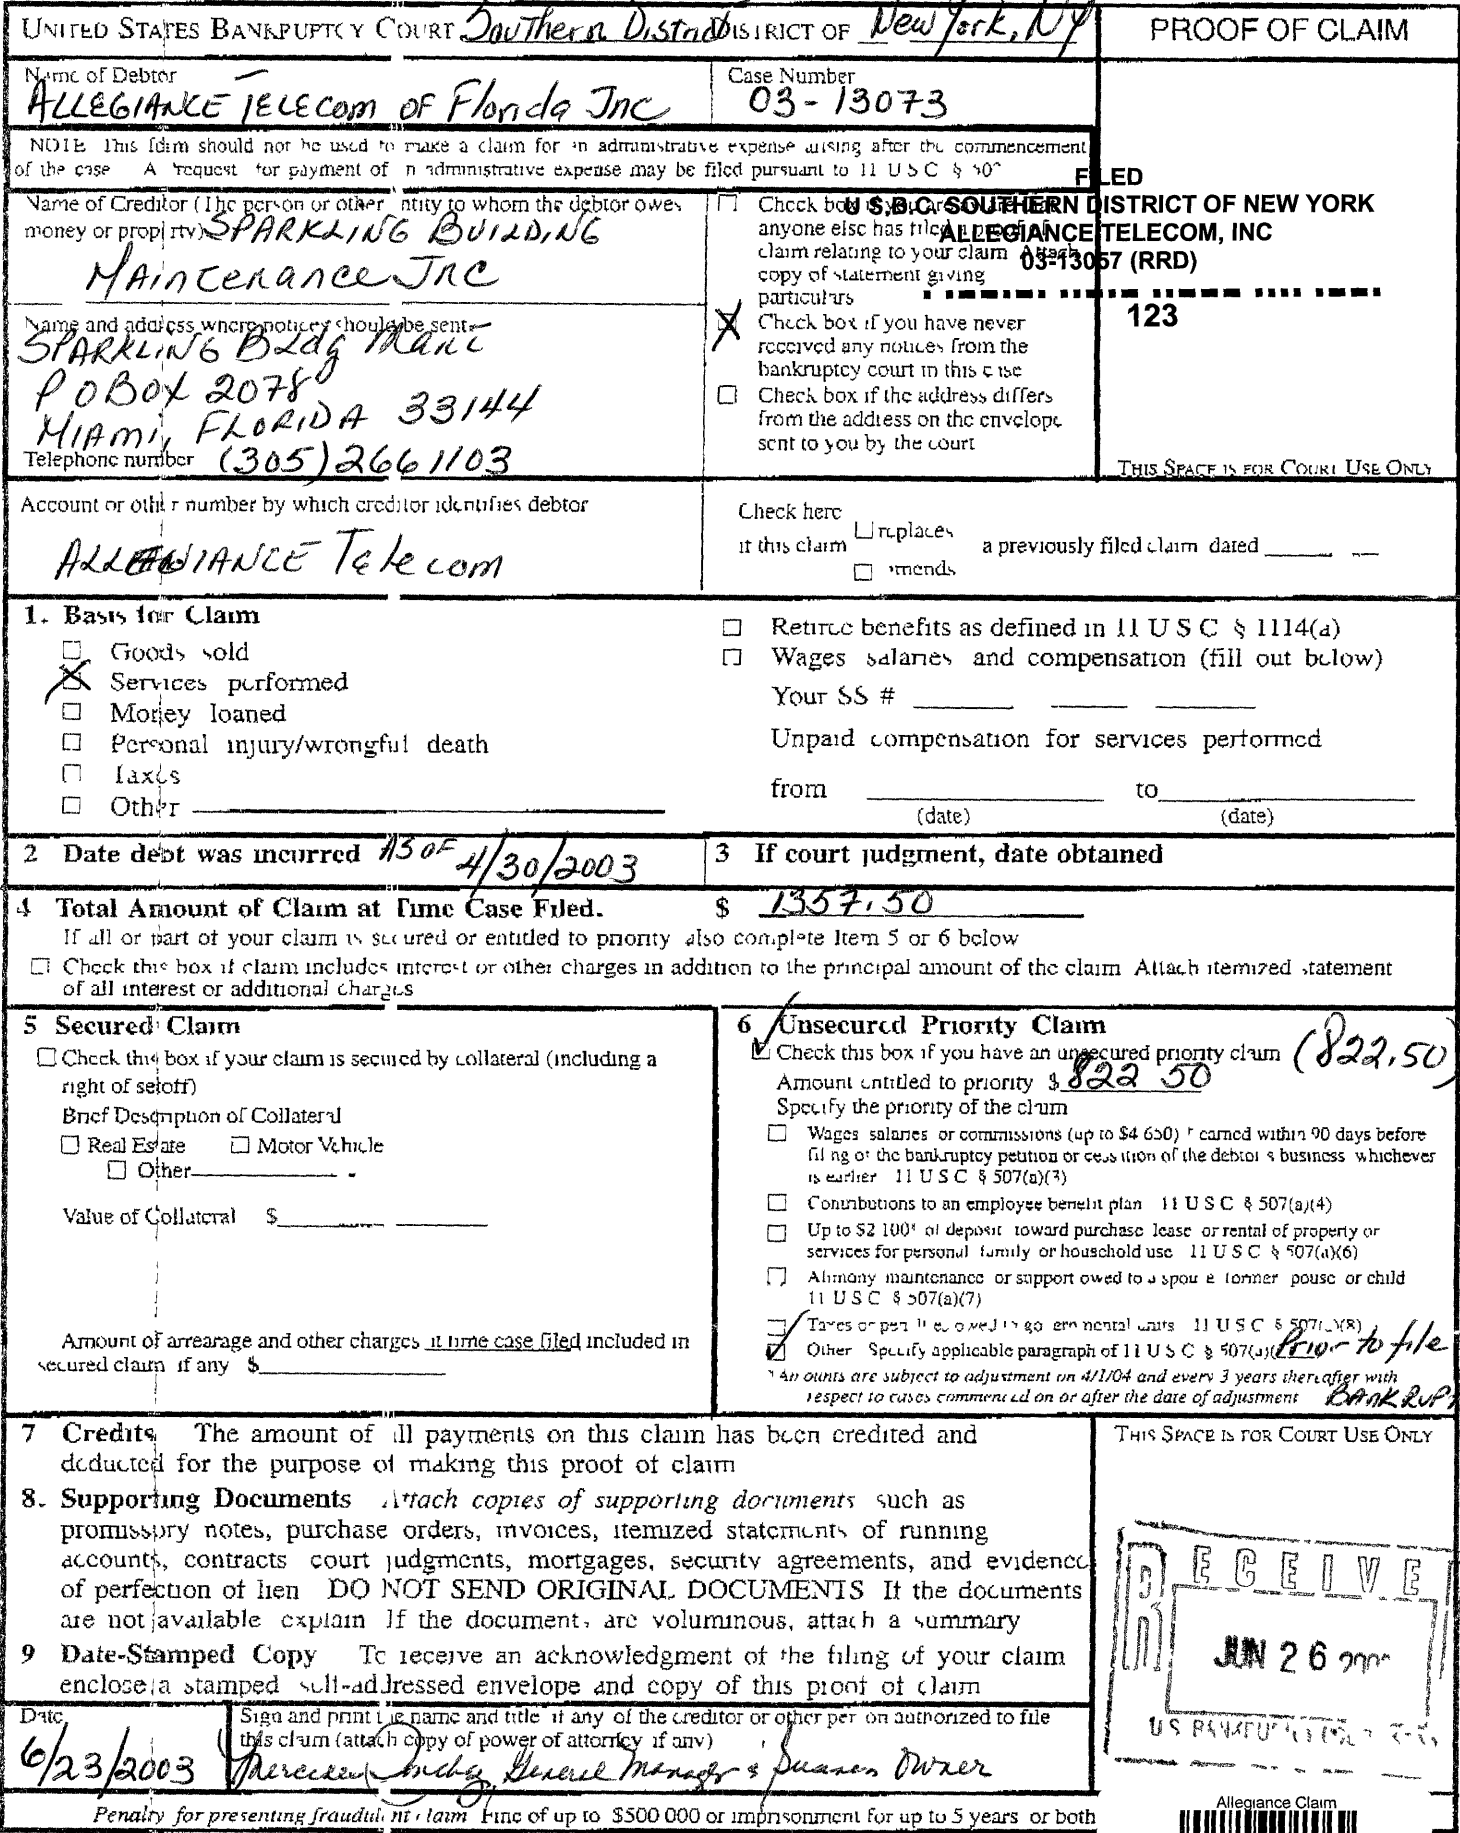 UNITED STATES BANKRUPTCY COURT Southern District DISTRICT OF New York, NY
PROOF OF CLAIM
Name of Debtor
ALLEGIANCE TELECOM OF Florida Inc
Case Number
03-13073
NOTE This form should not be used to make a claim for an administrative expense arising after the commencement
of the case A request for payment of an administrative expense may be filed pursuant to 11 U S C § 503
FILED
U.S.B.C. SOUTHERN DISTRICT OF NEW YORK
ALLEGIANCE TELECOM, INC
03-13057 (RRD)
123
Name of Creditor (The person or other entity to whom the debtor owes
money or property) SPARKLING BUILDING
MAINTENANCE INC
Check box if you are aware that
anyone else has filed a proof of
claim relating to your claim Attach
copy of statement giving
particulars
Name and address where notices should be sent
SPARKLING Bldg Maint
P O BOX 2078
MIAMI, FLORIDA 33144
Telephone number (305) 266 1103
Check box if you have never
received any notices from the
bankruptcy court in this case
Check box if the address differs
from the address on the envelope
sent to you by the court
THIS SPACE IS FOR COURT USE ONLY
Account or other number by which creditor identifies debtor
Telecom
Check here
if this claim
replaces
amends
a previously filed claim dated
1. Basis for Claim
Goods sold
Services performed
Money loaned
Personal injury/wrongful death
Taxes
Other
Retiree benefits as defined in 11 U S C § 1114(a)
Wages salaries and compensation (fill out below)
Your SS #
Unpaid compensation for services performed
from to
(date) (date)
2 Date debt was incurred AS OF 4/30/2003
3 If court judgment, date obtained
4 Total Amount of Claim at Time Case Filed. $ 1357.50
If all or part of your claim is secured or entitled to priority also complete Item 5 or 6 below
Check this box if claim includes interest or other charges in addition to the principal amount of the claim Attach itemized statement
of all interest or additional charges
5 Secured Claim
Check this box if your claim is secured by collateral (including a
right of setoff)
Brief Description of Collateral
Real Estate Motor Vehicle
Other
Value of Collateral $
Amount of arrearage and other charges at time case filed included in
secured claim if any $
6 Unsecured Priority Claim
Check this box if you have an unsecured priority claim (822.50)
Amount entitled to priority $ 822 50
Specify the priority of the claim
Wages salaries or commissions (up to $4 650) * earned within 90 days before
filing of the bankruptcy petition or cessation of the debtor s business whichever
is earlier 11 U S C § 507(a)(3)
Contributions to an employee benefit plan 11 U S C § 507(a)(4)
Up to $2 100* of deposit toward purchase lease or rental of property or
services for personal family or household use 11 U S C § 507(a)(6)
Alimony maintenance or support owed to a spouse former spouse or child
11 U S C § 507(a)(7)
Taxes or penalties owed to governmental units 11 U S C § 507(a)(8)
Other Specify applicable paragraph of 11 U S C § 507(a)( Prior to file
* Amounts are subject to adjustment on 4/1/04 and every 3 years thereafter with
respect to cases commenced on or after the date of adjustment BANKRUPT
7 Credits The amount of all payments on this claim has been credited and
deducted for the purpose of making this proof of claim
8. Supporting Documents Attach copies of supporting documents such as
promissory notes, purchase orders, invoices, itemized statements of running
accounts, contracts court judgments, mortgages, security agreements, and evidence
of perfection of lien DO NOT SEND ORIGINAL DOCUMENTS If the documents
are not available explain If the documents are voluminous, attach a summary
9 Date-Stamped Copy To receive an acknowledgment of the filing of your claim
enclose a stamped self-addressed envelope and copy of this proof of claim
THIS SPACE IS FOR COURT USE ONLY
RECEIVE
JUN 26
Date
6/23/2003
Sign and print the name and title if any of the creditor or other person authorized to file
this claim (attach copy of power of attorney if any)
General Manager Owner
Penalty for presenting fraudulent claim Fine of up to $500 000 or imprisonment for up to 5 years or both
Allegiance Claim